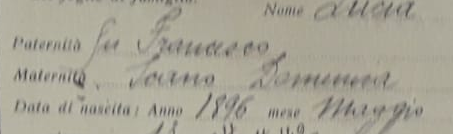 Nome Lucia
Paternità fu Francesco
Maternità Soano Domenica
Data di nascita: Anno 1896 mese Maggio